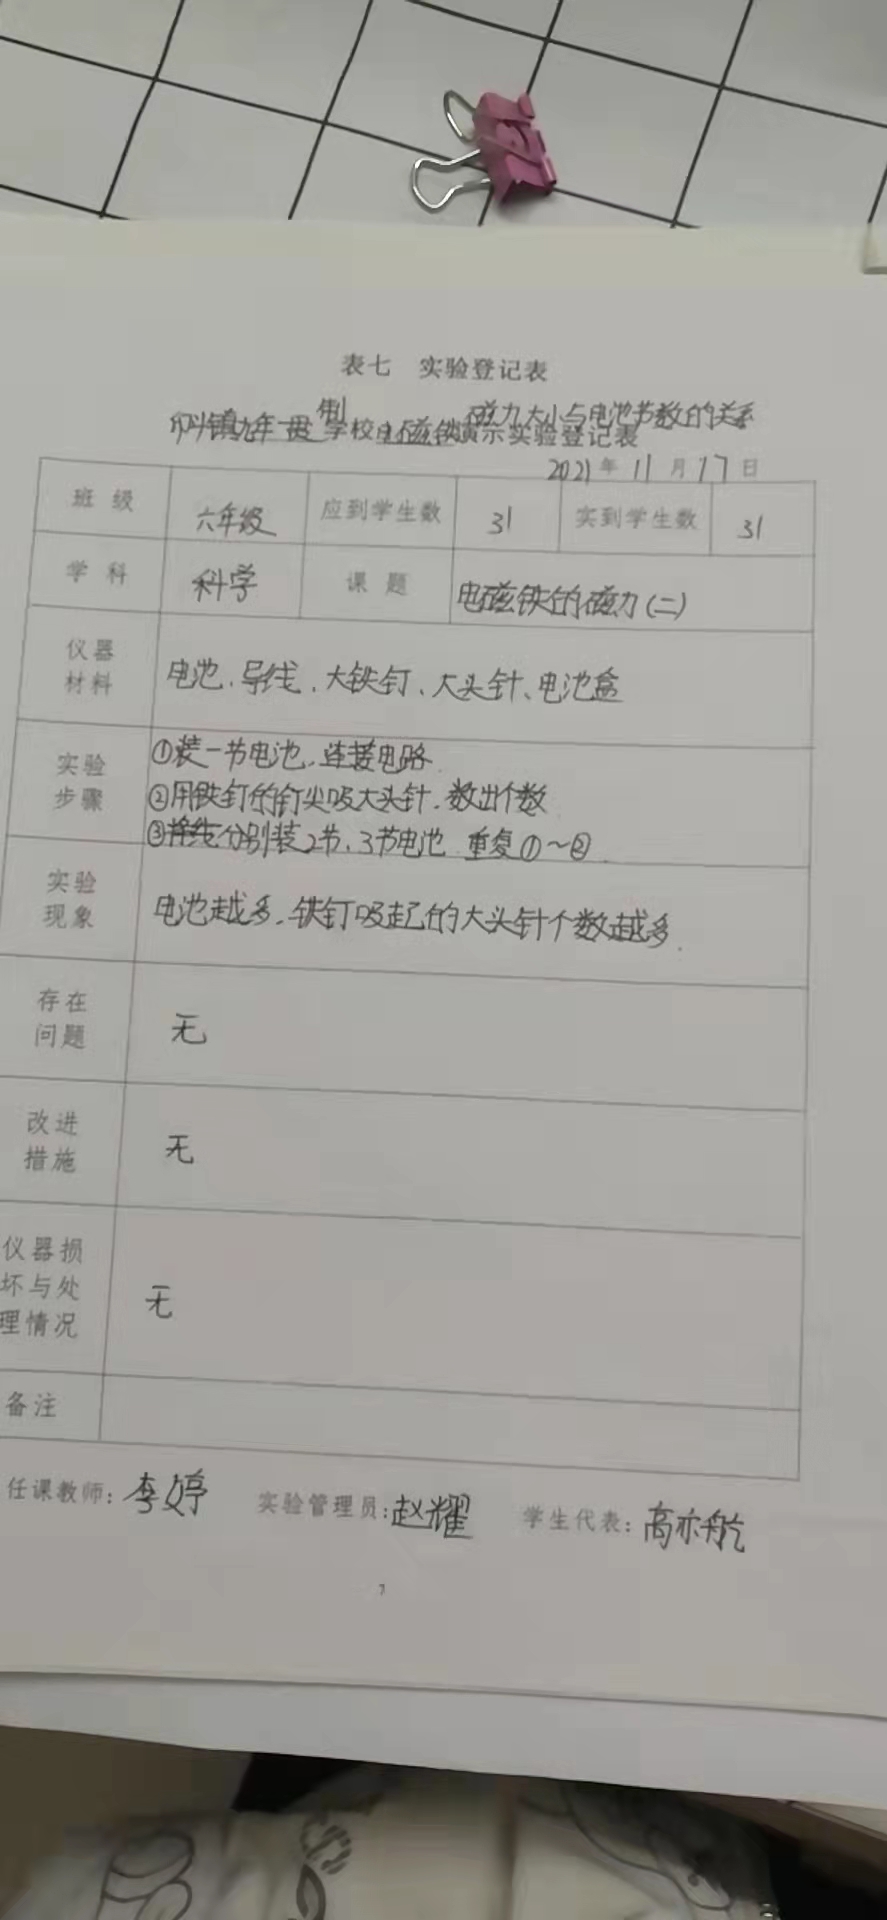 表七 实验登记表
制 磁力大小与电池节数的关系
镇九年一贯学校电磁铁演示实验登记表
2021年11月17日
班级 六年级 应到学生数 31 实到学生数 31
学科 科学 课题 电磁铁的磁力(二)
仪器材料 电池、导线、大铁钉、大头针、电池盒
实验步骤 ①装一节电池,连接电路.
②用铁钉的钉尖吸大头针,数出个数
③分别装2节、3节电池 重复①~②.
实验现象 电池越多,铁钉吸起的大头针个数越多.
存在问题 无
改进措施 无
仪器损坏与处理情况 无
备注
任课教师:李婷 实验管理员:赵耀 学生代表:高亦航
7